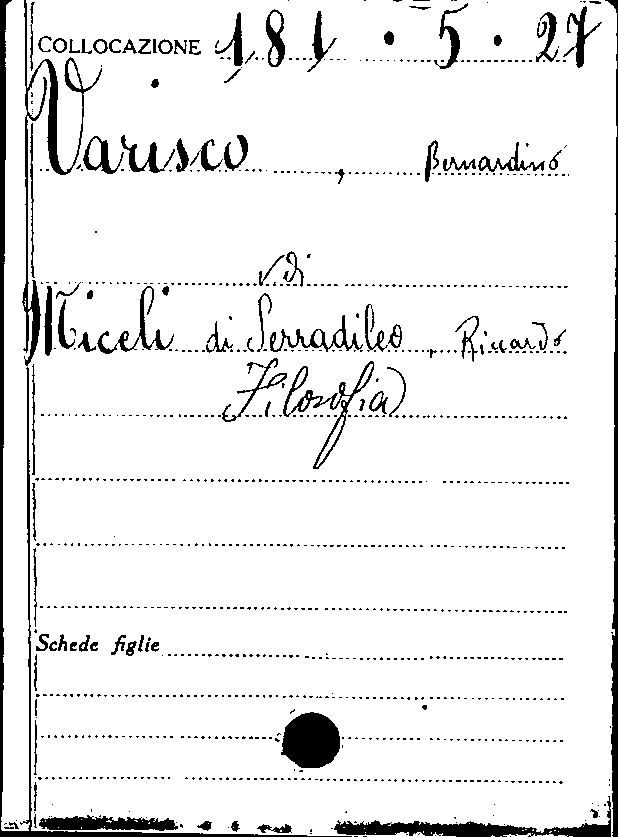 COLLOCAZIONE 181 . 5 . 27
Varisco , Bernardino
v di
Miceli di Serradileo , Riccardo
Filosofia
Schede figlie